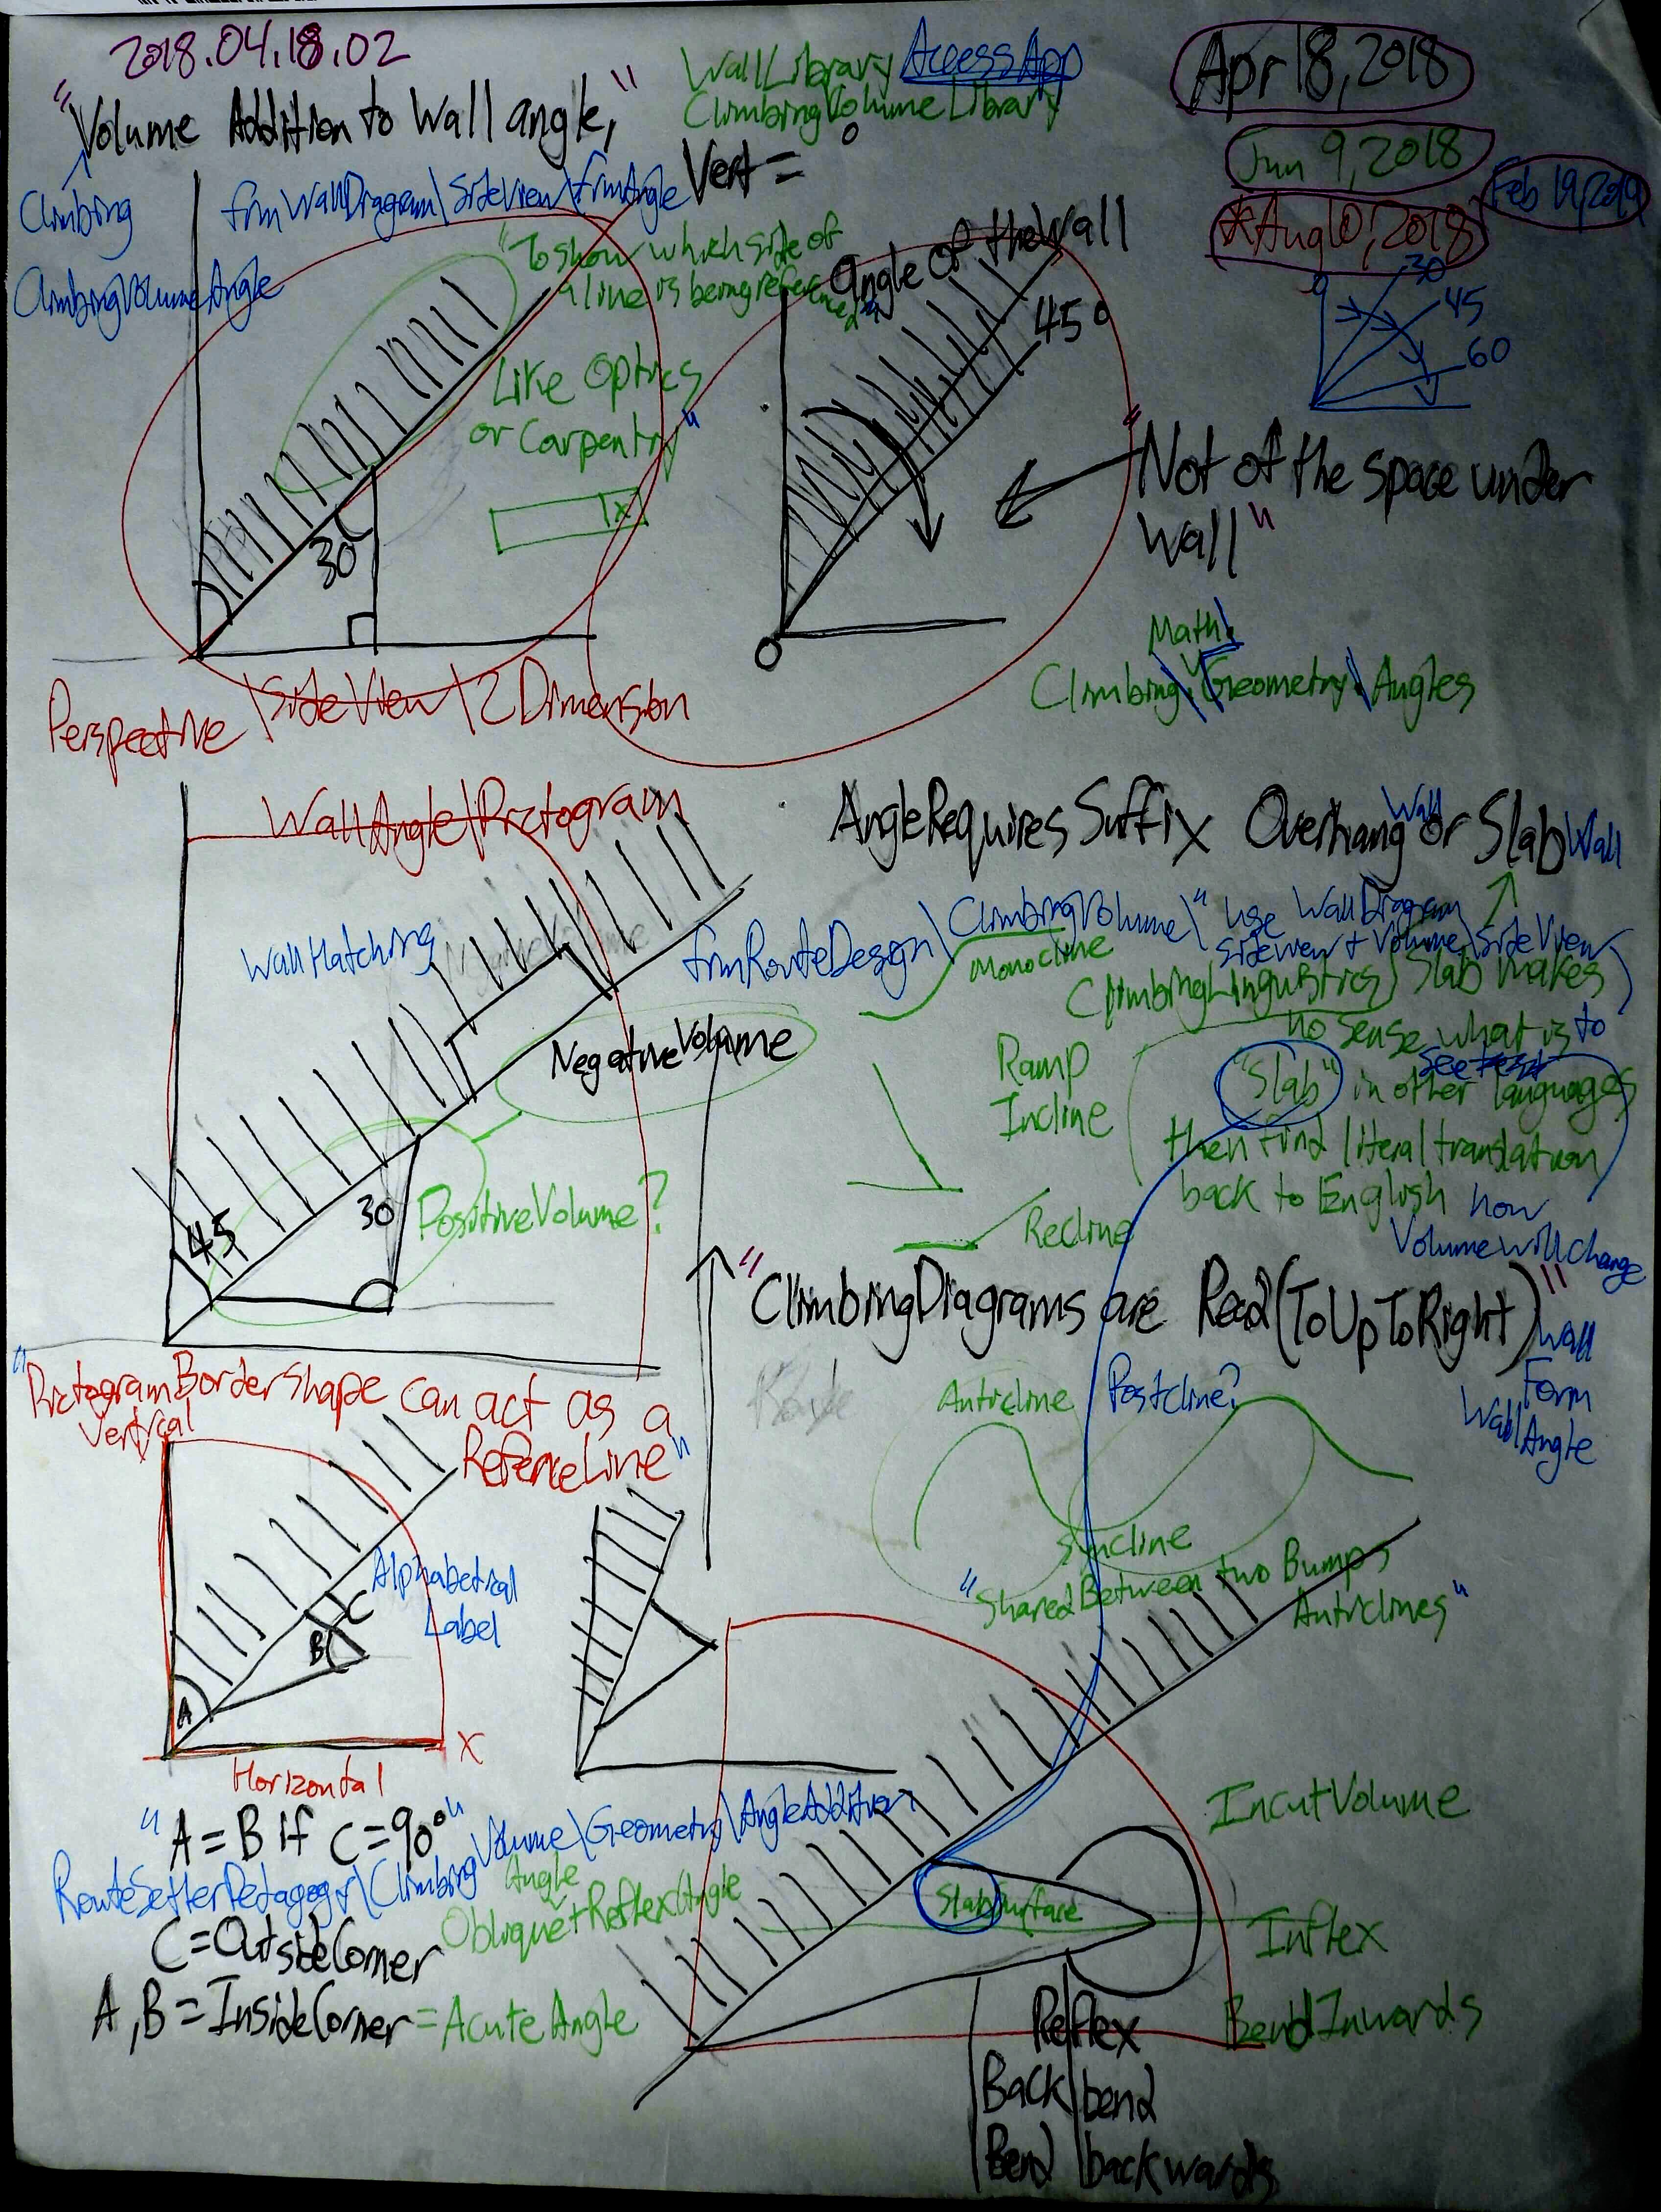 2018.04.18.02
"Volume Addition to Wall angle,"
WallLibrary AccessApp
ClimbingVolumeLibrary
Apr 18, 2018
Jun 9, 2018
Feb 19, 2019
*Aug 10, 2018
Climbing
ClimbingVolumeAngle
frmWallDiagram\SideView\frmAngle
Vert = °
"To show which side of
a line is being referenced"
Like Optics
or Carpentry"
Angle of the Wall
45°
0
30
45
60
30
x
"Not of the space under
Wall"
0
Math\
Climbing\Geometry\Angles
Perspective\SideView\2Dimension
WallAngle\Pictogram
AngleRequiresSuffix OverhangWall or SlabWall
WallHatching
frmRouteDesign\ClimbingVolume\"use WallDiagram
SideView + Volume\SideView
Monocline
(ClimbingLinguistics) Slab makes
no sense what is to
see
"Slab" in other languages
then find literal translation
back to English
how
Volume will change
Ramp
Incline
Recline
NegativeVolume
PositiveVolume?
45
30
"ClimbingDiagrams are Read(ToUpToRight)"
Wall
Form
WallAngle
"PictogramBorderShape can act as a
ReferenceLine"
Vertical
Anticline
Postcline?
Syncline
"SharedBetween two Bumps
Anticlines"
Alphabetical
Label
A
B
C
X
Horizontal
"A = B if C = 90°"
RouteSetterPedagogy\ClimbingVolume\Geometry\AngleAddition
Angle
Oblique + ReflexAngle
C = OutsideCorner
A, B = InsideCorner = AcuteAngle
IncutVolume
SlabSurface
Inflex
BendInwards
Reflex
Back bend
Bend backwards